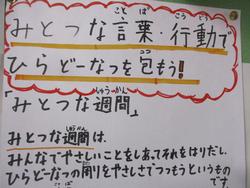 みとつな言葉・行動で
ひらどーなつを包もう!
「みとつな週間」
みとつな週間は、
みんなでやさしいことをしあってそれをはりだし、
ひらどーなつの周りをやさしさでつつもうというもの
です。